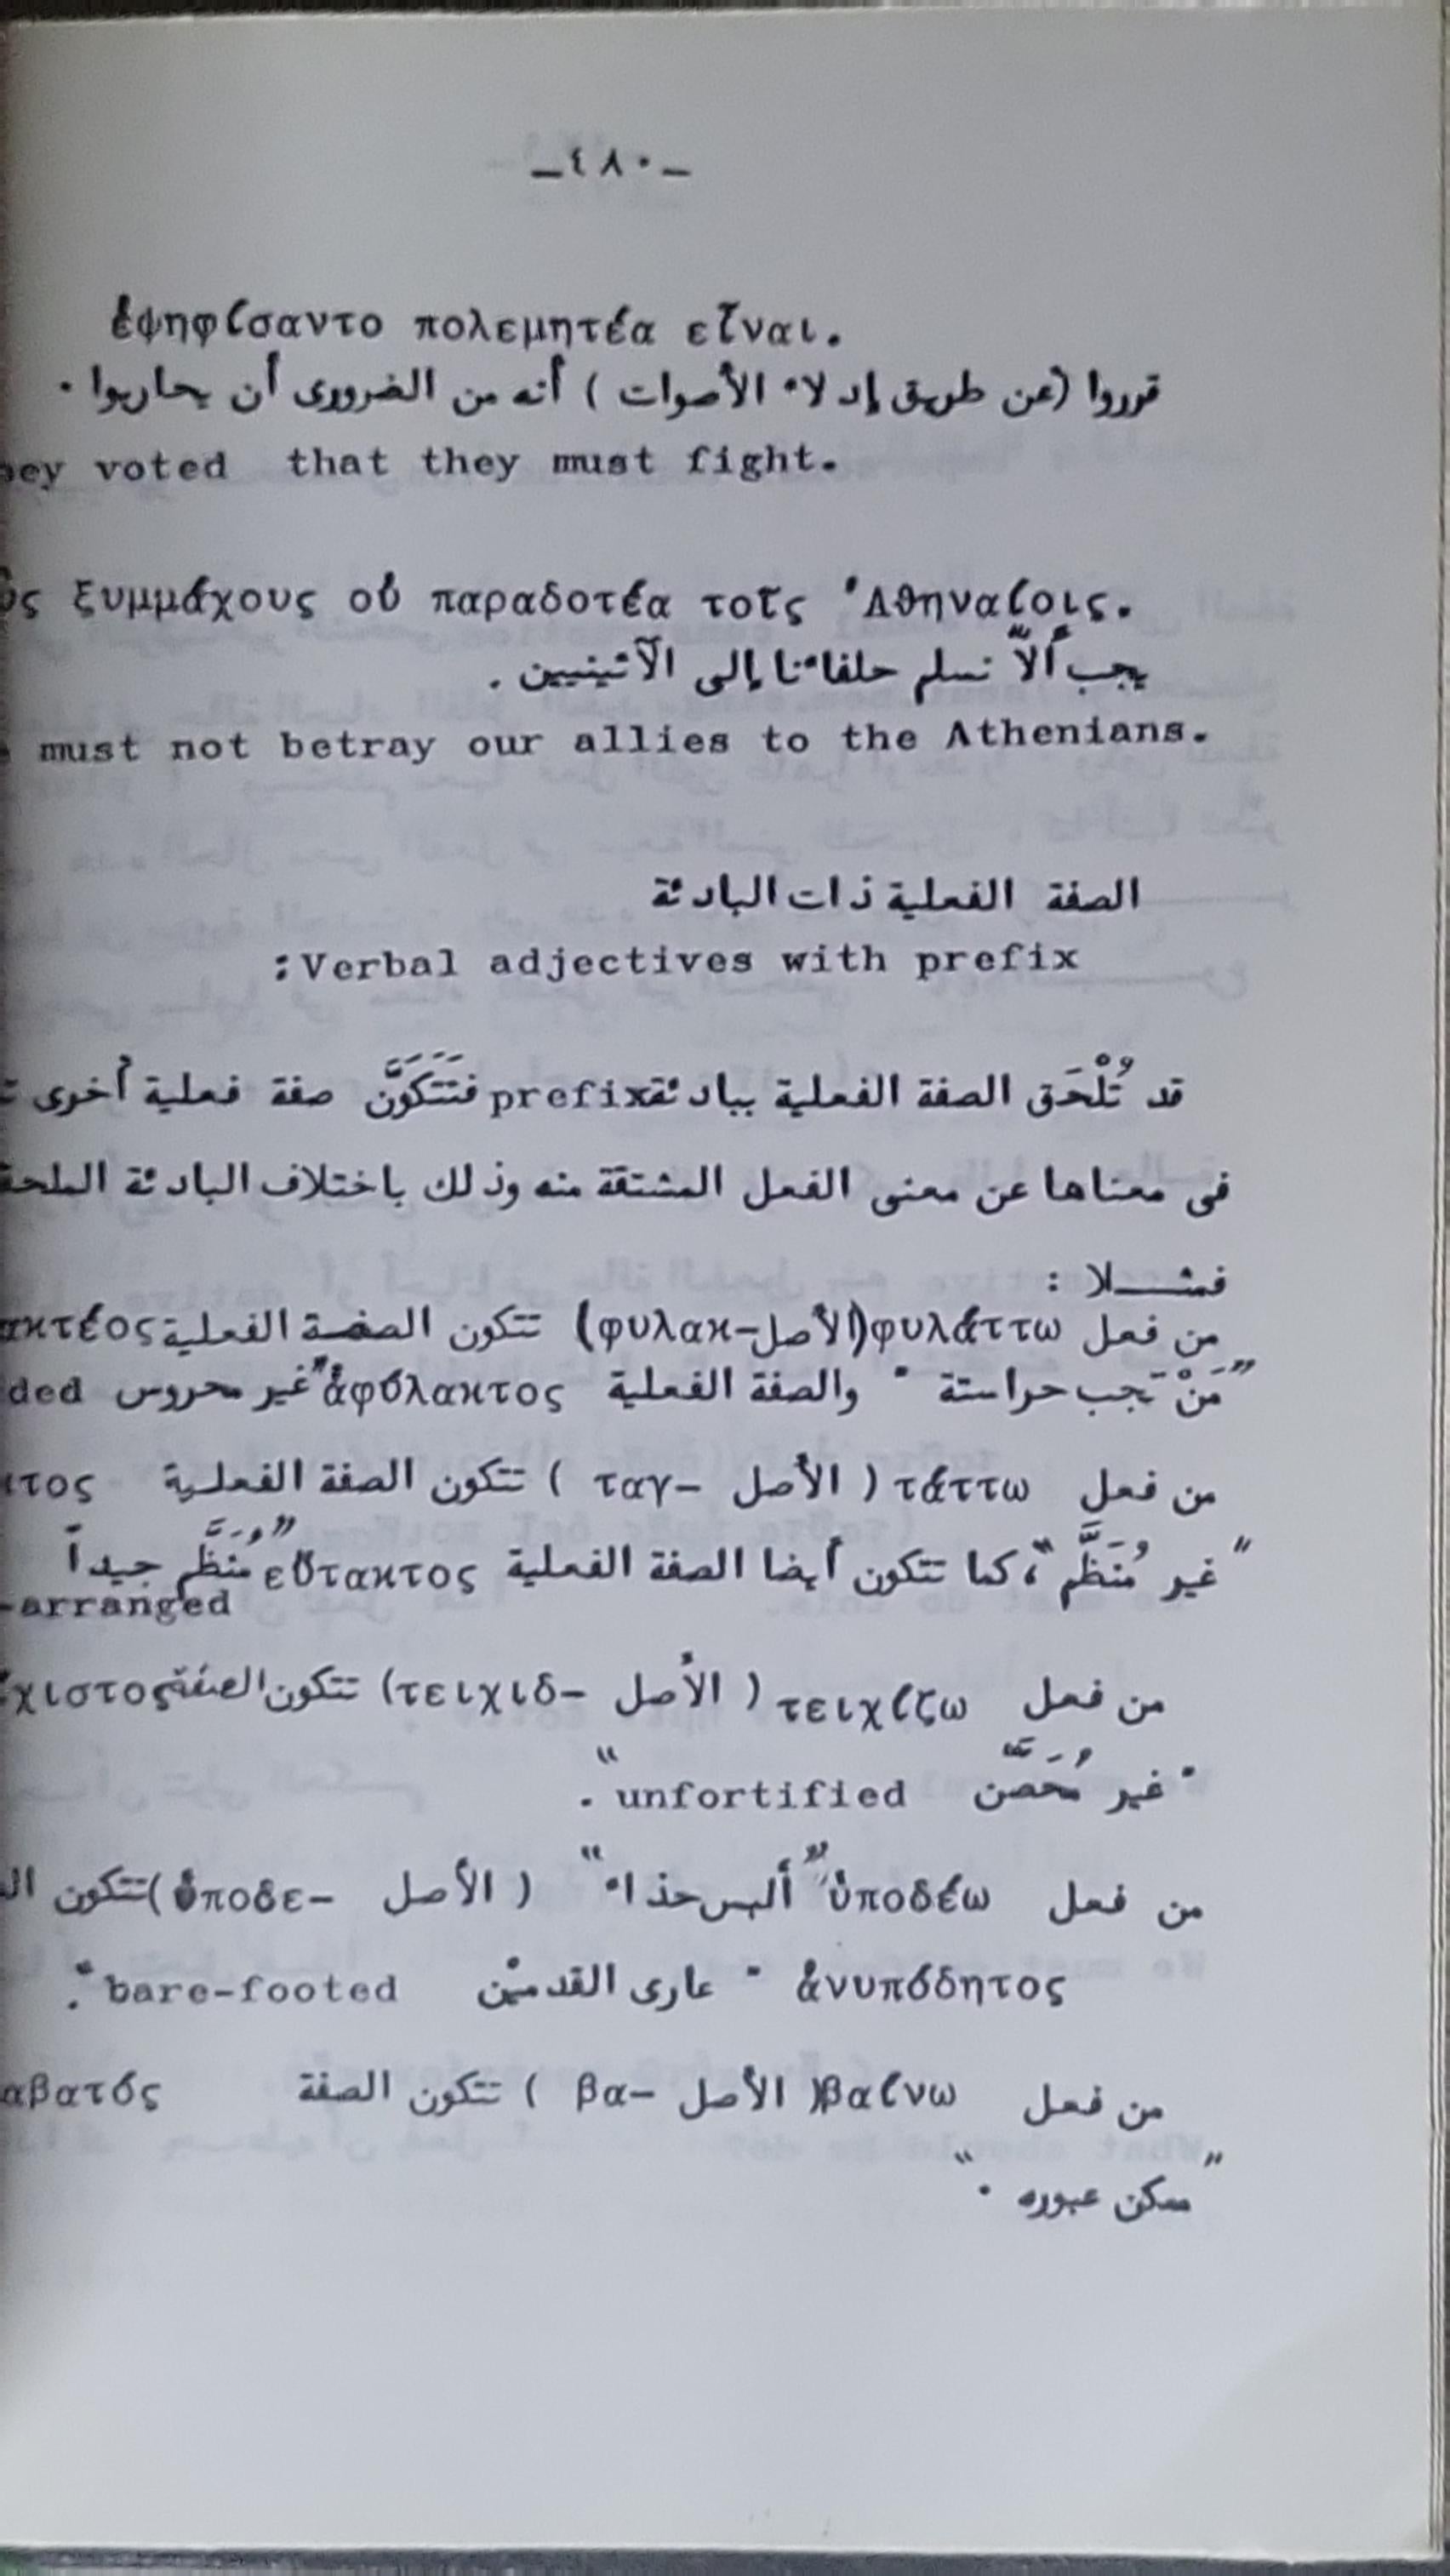 -٤٨٠-
ἐψηφίσαντο πολεμητέα εἶναι.
قرروا (عن طريق إدلاء الأصوات) أنه من الضرورى أن يحاربوا .
voted that they must fight.
ξυμμάχους οὐ παραδοτέα τοῖς 'Αθηναίοις.
يجب ألاّ نسلم حلفاءنا إلى الآثينيين .
must not betray our allies to the Athenians.
الصفة الفعلية ذات البادئة
:Verbal adjectives with prefix
قد تُلْحَق الصفة الفعلية ببادئة prefix فتَتَكَوَّن صفة فعلية أخرى
فى معناها عن معنى الفعل المشتقة منه وذلك باختلاف البادئة
فمثــلا :
من فعل φυλάττω (الأصل φυλακ-) تتكون الصفة الفعلية ακτέος
"مَنْ تجب حراستة" والصفة الفعلية ἀφύλακτος "غير محروس ded
من فعل τάττω ( الأصل ταγ- ) تتكون الصفة الفعلية κτος
"غير مُنَظَّم"، كما تتكون أيضا الصفة الفعلية εὔτακτος "مُنَظَّم جيداً
-arranged
من فعل τειχίζω ( الأصل τειχιδ-) تتكون الصفة χιστος
"غير مُحَصَّن unfortified" .
من فعل ὑποδέω "ألبس حذاء" ( الأصل ὑποδε-) تتكون
ἀνυπόδητος " عارى القدميْن bare-footed" .
من فعل βαίνω (الأصل βα- ) تتكون الصفة αβατός
"ممكن عبوره" .